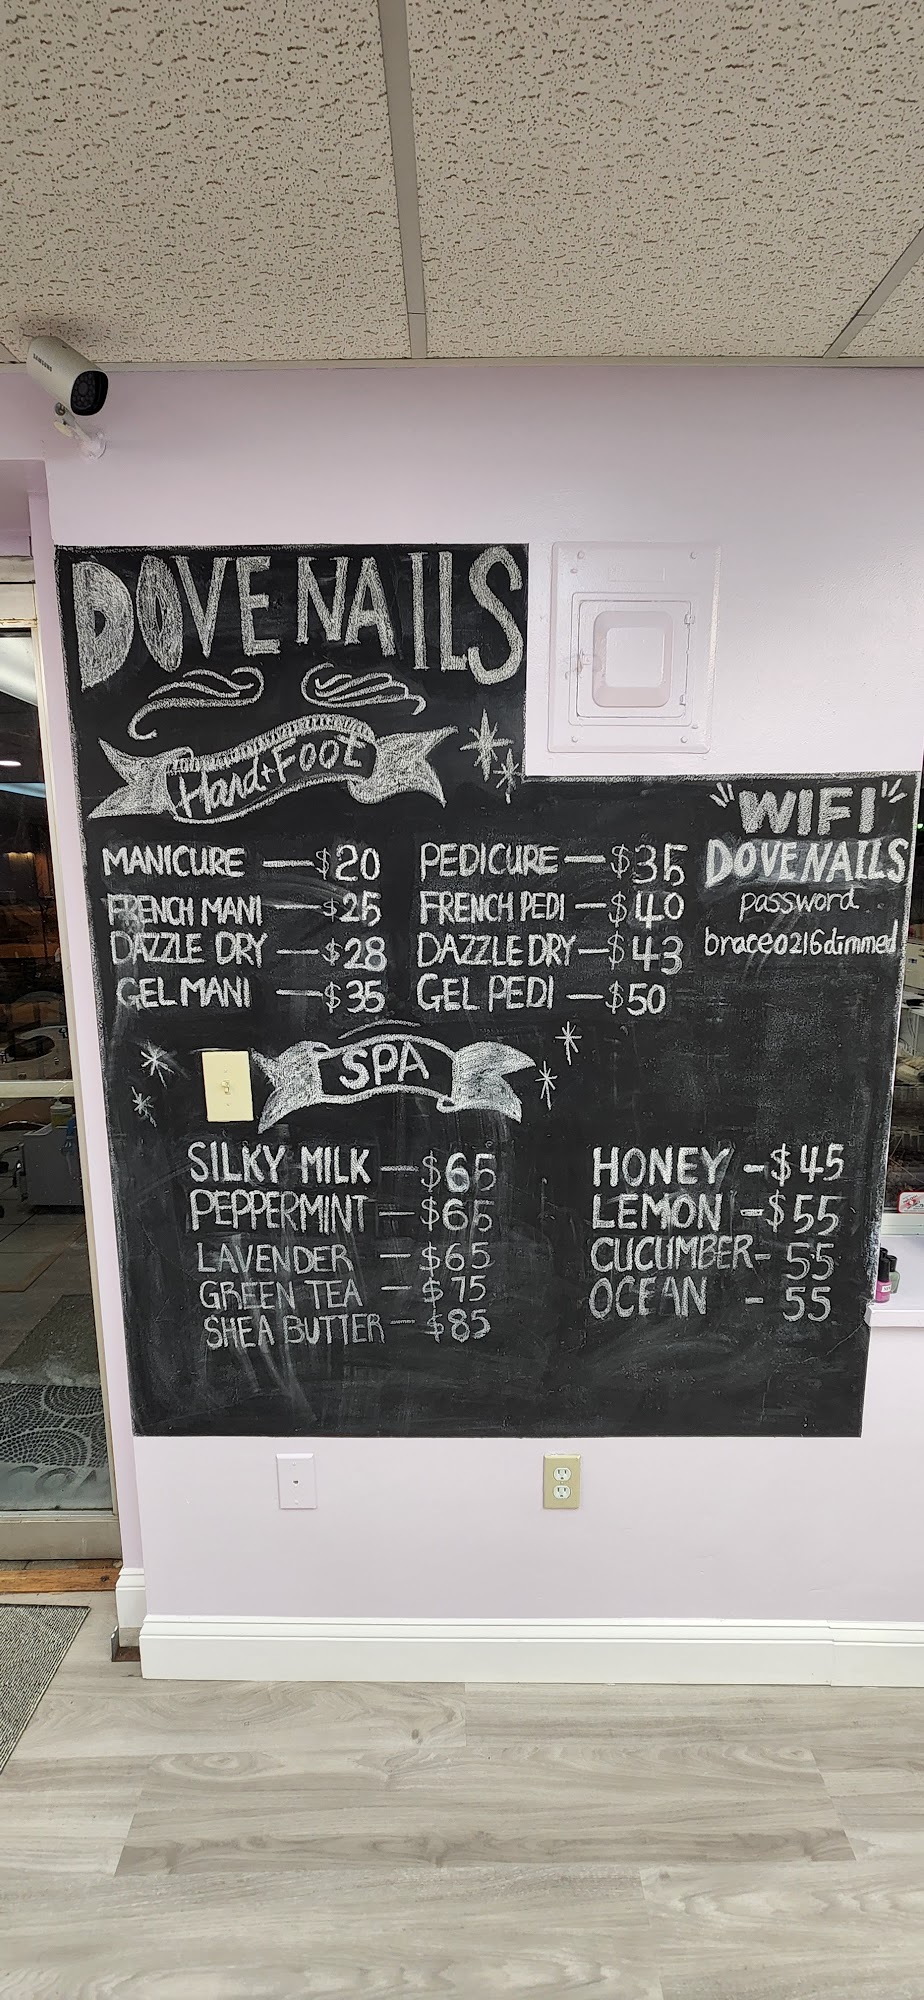 SAMSUNG
DOVE NAILS
Hand + Foot
MANICURE — $20
FRENCH MANI — $25
DAZZLE DRY — $28
GEL MANI — $35
PEDICURE — $35
FRENCH PEDI — $40
DAZZLE DRY — $43
GEL PEDI — $50
"WIFI"
DOVENAILS
password
brace0216dimmed
SPA
SILKY MILK — $65
PEPPERMINT — $65
LAVENDER — $65
GREEN TEA — $75
SHEA BUTTER — $85
HONEY - $45
LEMON - $55
CUCUMBER - 55
OCEAN - 55